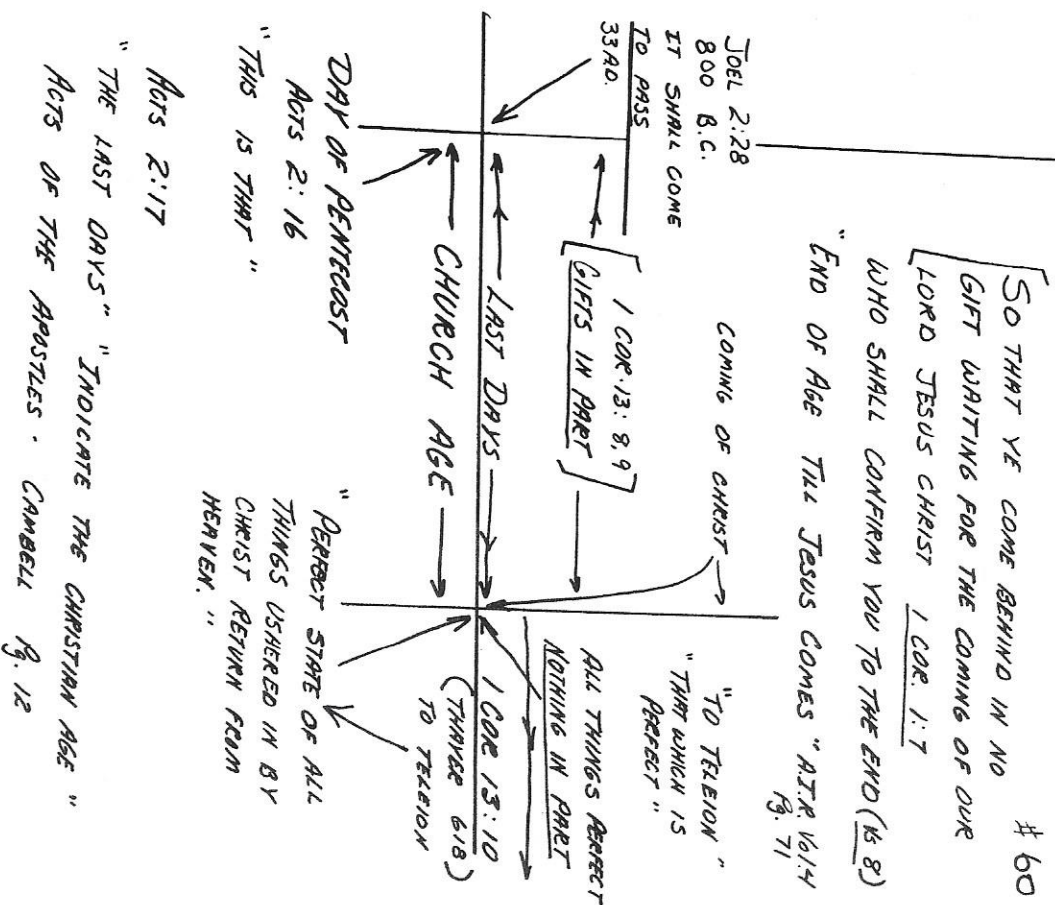 # 60
SO THAT YE COME BEHIND IN NO
GIFT WAITING FOR THE COMING OF OUR
LORD JESUS CHRIST 1 COR. 1:7
WHO SHALL CONFIRM YOU TO THE END (VS 8)
"END OF AGE TILL JESUS COMES" A.T.R. Vol.4
Pg. 71
JOEL 2:28
800 B.C.
IT SHALL COME
TO PASS
33 A.D.
COMING OF CHRIST
"TO TELEION"
"THAT WHICH IS
PERFECT"
1 COR. 13:8,9
GIFTS IN PART
ALL THINGS PERFECT
NOTHING IN PART
LAST DAYS
1 COR 13:10
CHURCH AGE
(THAYER 618)
TO TELEION
DAY OF PENTECOST
ACTS 2:16
"THIS IS THAT"
"PERFECT STATE OF ALL
THINGS USHERED IN BY
CHRIST RETURN FROM
HEAVEN."
ACTS 2:17
"THE LAST DAYS" "INDICATE THE CHRISTIAN AGE"
ACTS OF THE APOSTLES. CAMBELL Pg. 12